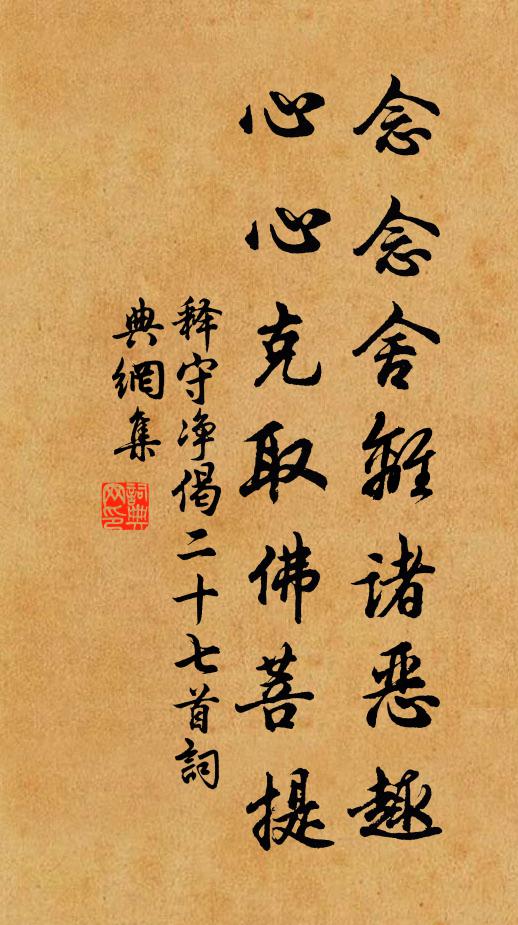 念念舍離诸恶趣
心心克取佛菩提
释守净偈二十七首詞
典網集
詞典
网印